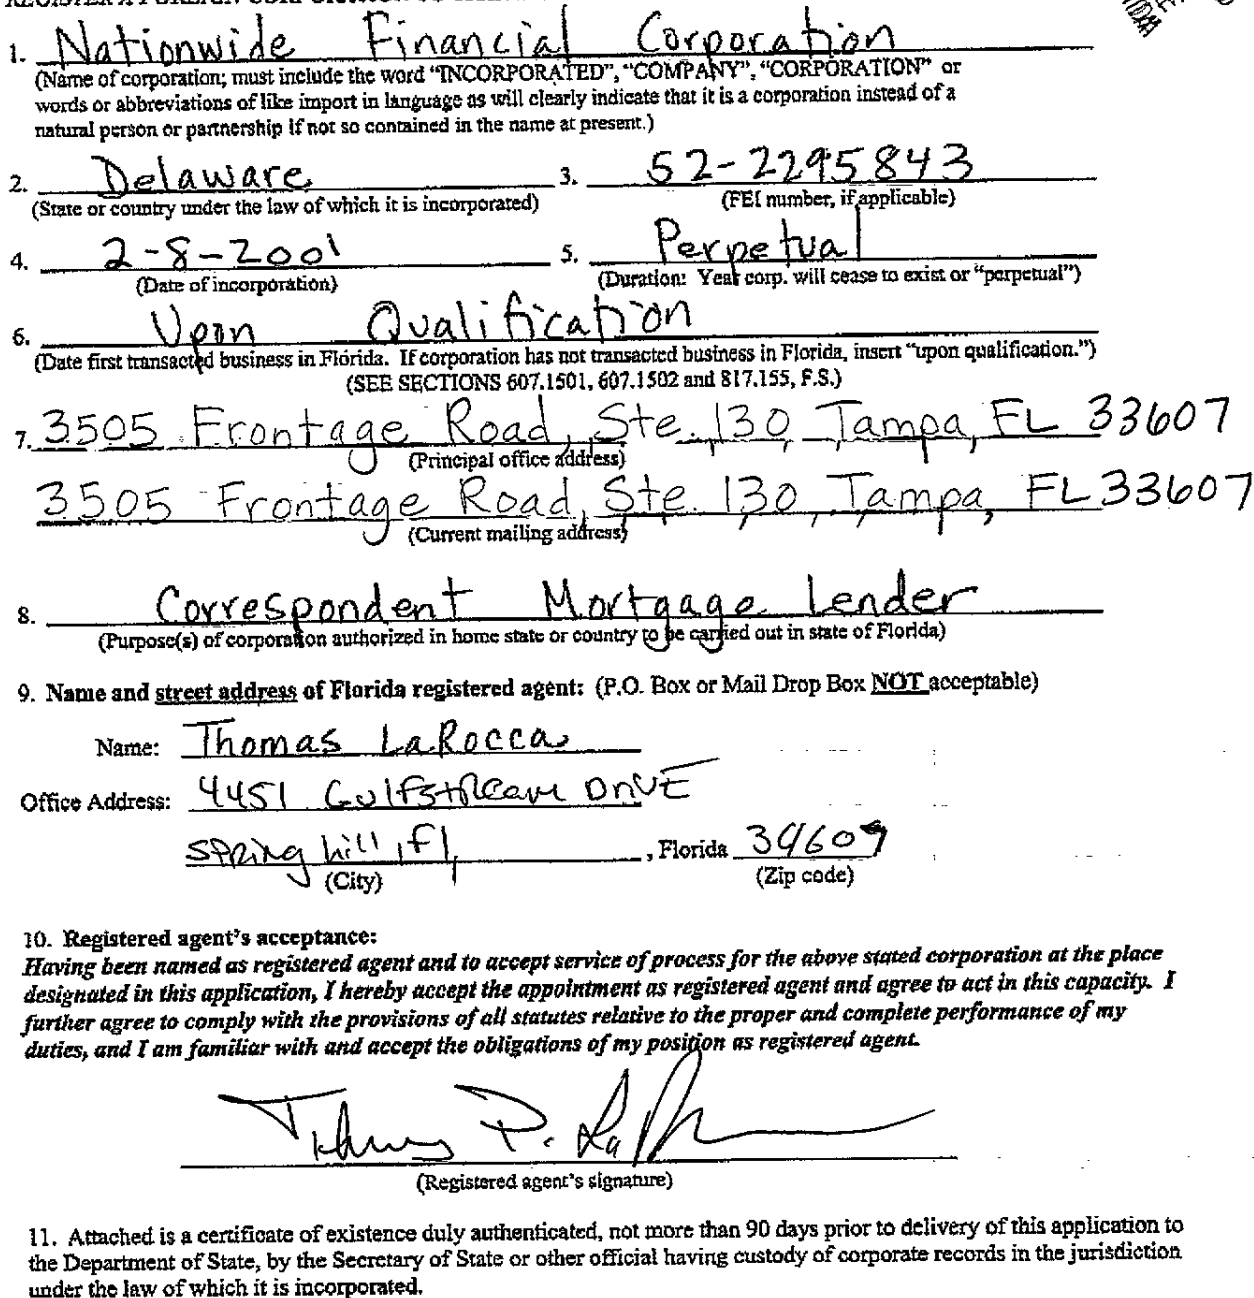 1. Nationwide Financial Corporation
(Name of corporation; must include the word "INCORPORATED", "COMPANY", "CORPORATION" or
words or abbreviations of like import in language as will clearly indicate that it is a corporation instead of a
natural person or partnership if not so contained in the name at present.)
2. Delaware 3. 52-2295843
(State or country under the law of which it is incorporated) (FEI number, if applicable)
4. 2-8-2001 5. Perpetual
(Date of incorporation) (Duration: Year corp. will cease to exist or "perpetual")
6. Upon Qualification
(Date first transacted business in Florida. If corporation has not transacted business in Florida, insert "upon qualification.")
(SEE SECTIONS 607.1501, 607.1502 and 817.155, F.S.)
7. 3505 Frontage Road, Ste. 130, Tampa, FL 33607
(Principal office address)
3505 Frontage Road, Ste. 130, Tampa, FL 33607
(Current mailing address)
8. Correspondent Mortgage Lender
(Purpose(s) of corporation authorized in home state or country to be carried out in state of Florida)
9. Name and street address of Florida registered agent: (P.O. Box or Mail Drop Box NOT acceptable)
Name: Thomas LaRocca
Office Address: 4451 Gulfstream Drive
Spring hill, fl, , Florida 34607
(City) (Zip code)
10. Registered agent's acceptance:
Having been named as registered agent and to accept service of process for the above stated corporation at the place
designated in this application, I hereby accept the appointment as registered agent and agree to act in this capacity. I
further agree to comply with the provisions of all statutes relative to the proper and complete performance of my
duties, and I am familiar with and accept the obligations of my position as registered agent.
(Registered agent's signature)
11. Attached is a certificate of existence duly authenticated, not more than 90 days prior to delivery of this application to
the Department of State, by the Secretary of State or other official having custody of corporate records in the jurisdiction
under the law of which it is incorporated.